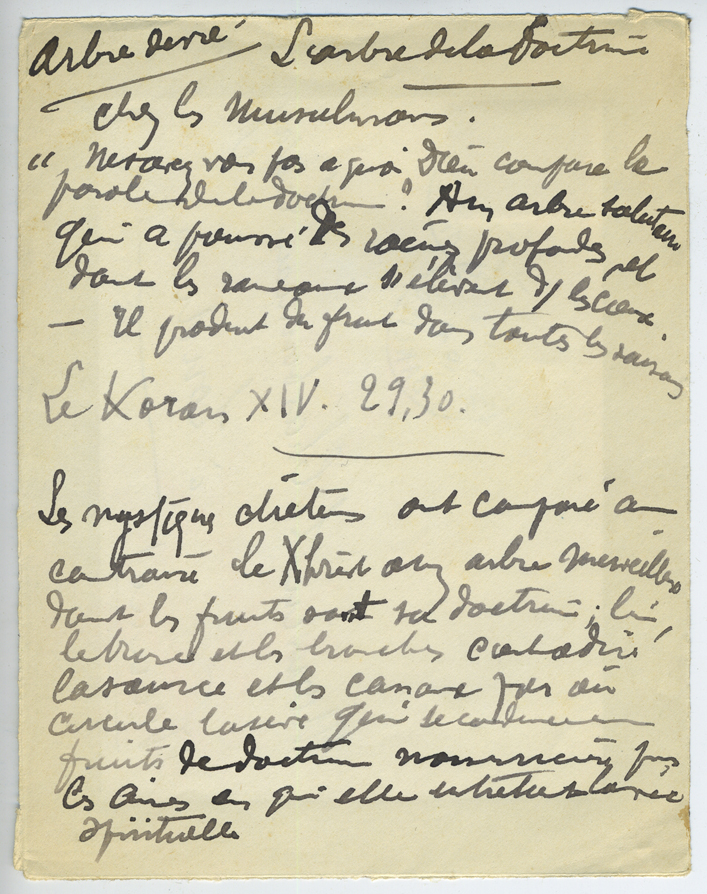 Arbre de vie L'arbre de la Doctrine
chez les Musulmans.
" Ne savez vous pas a quoi Dieu compare la
parole de la doctrine? A un arbre salutaire
qui a poussé des racines profondes et
dont les rameaux s'élèvent dans les cieux
— Il produit du fruit dans toutes les saisons
Le Koran XIV. 29,30.
Les mystiques chrétiens ont comparé au
contraire le Xhrist a un arbre merveilleux
dont les fruits sont sa doctrine; lui,
le tronc et les branches c'est a dire
la source et les canaux par où
circule la sève qui se condense en
fruits de doctrine nourriciers pour
les âmes en qui elle entretient la vie
spirituelle